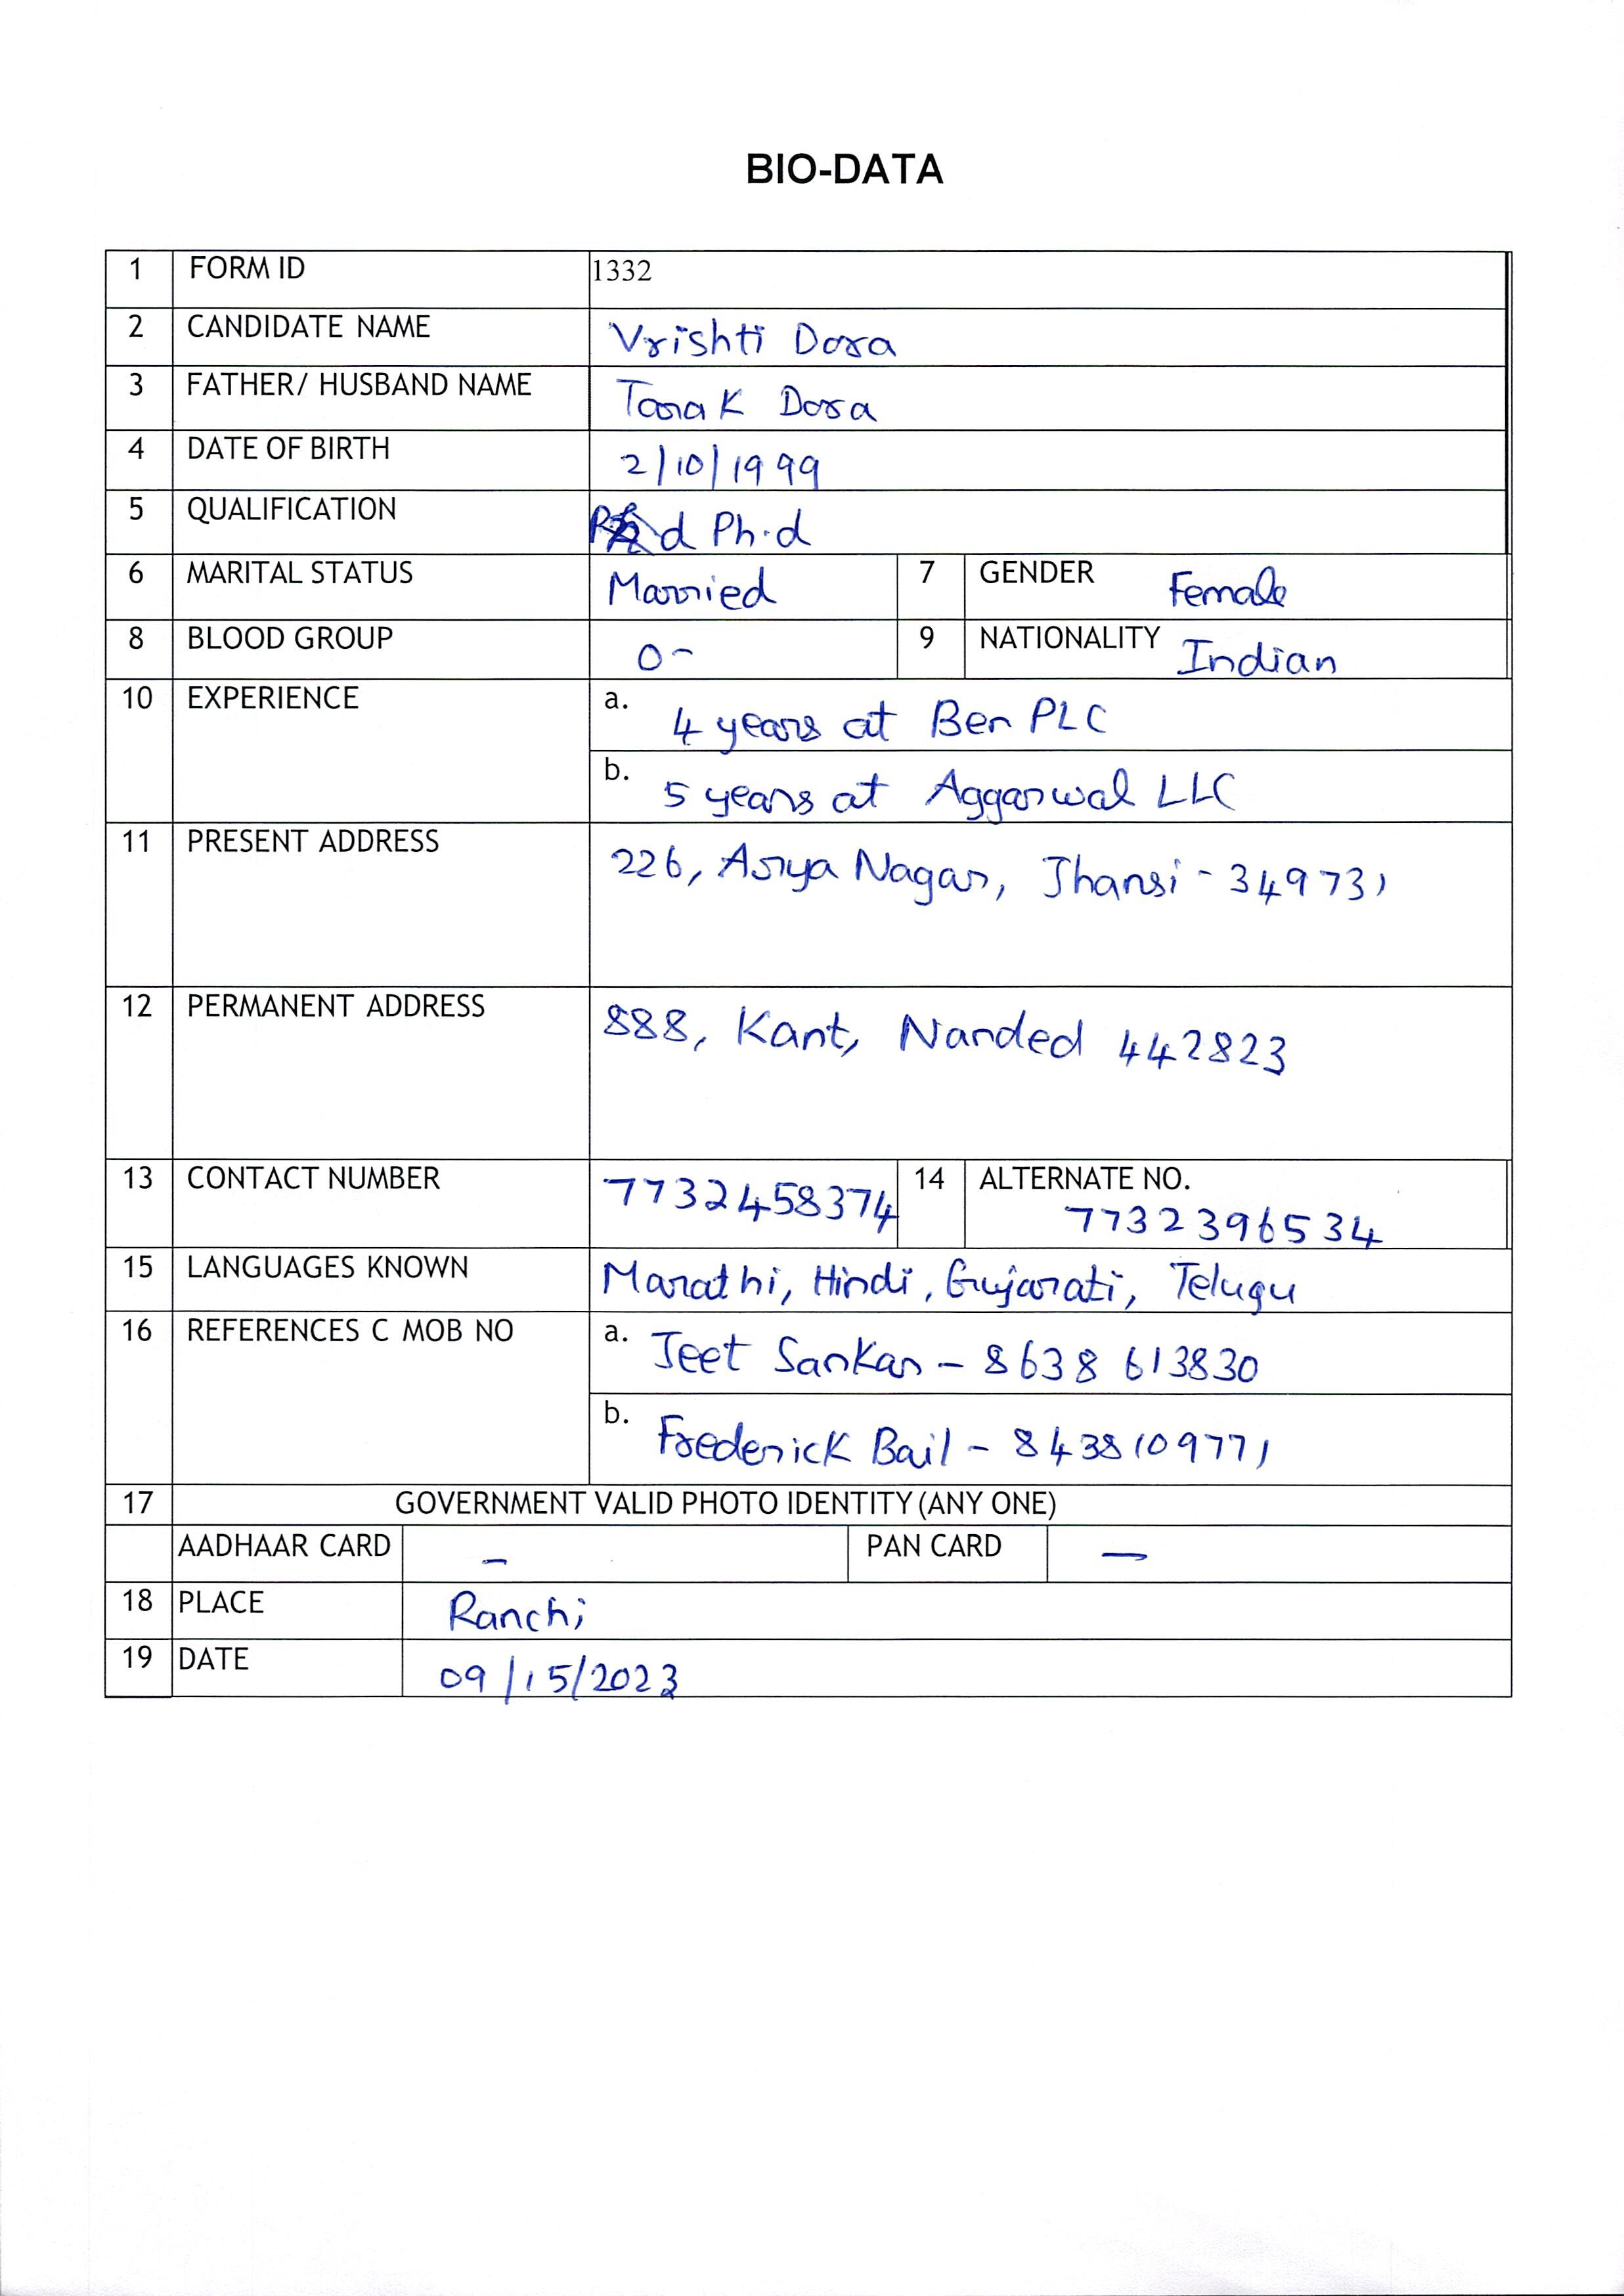 BIO-DATA
1 FORM ID 1332
2 CANDIDATE NAME Vrishti Dora
3 FATHER/ HUSBAND NAME Tarak Dora
4 DATE OF BIRTH 2/10/1999
5 QUALIFICATION d Ph.d
6 MARITAL STATUS Married 7 GENDER Female
8 BLOOD GROUP O- 9 NATIONALITY Indian
10 EXPERIENCE a. 4 years at Ber PLC
b. 5 years at Aggarwal LLC
11 PRESENT ADDRESS 226, Arya Nagar, Jhansi - 349731
12 PERMANENT ADDRESS 888, Kant, Nanded 442823
13 CONTACT NUMBER 7732458374 14 ALTERNATE NO.
7732396534
15 LANGUAGES KNOWN Marathi, Hindi, Gujarati, Telugu
16 REFERENCES C MOB NO a. Jeet Sankar - 8638 613830
b. Frederick Bail - 8438109771
17 GOVERNMENT VALID PHOTO IDENTITY (ANY ONE)
AADHAAR CARD - PAN CARD -
18 PLACE Ranchi
19 DATE 09/15/2023